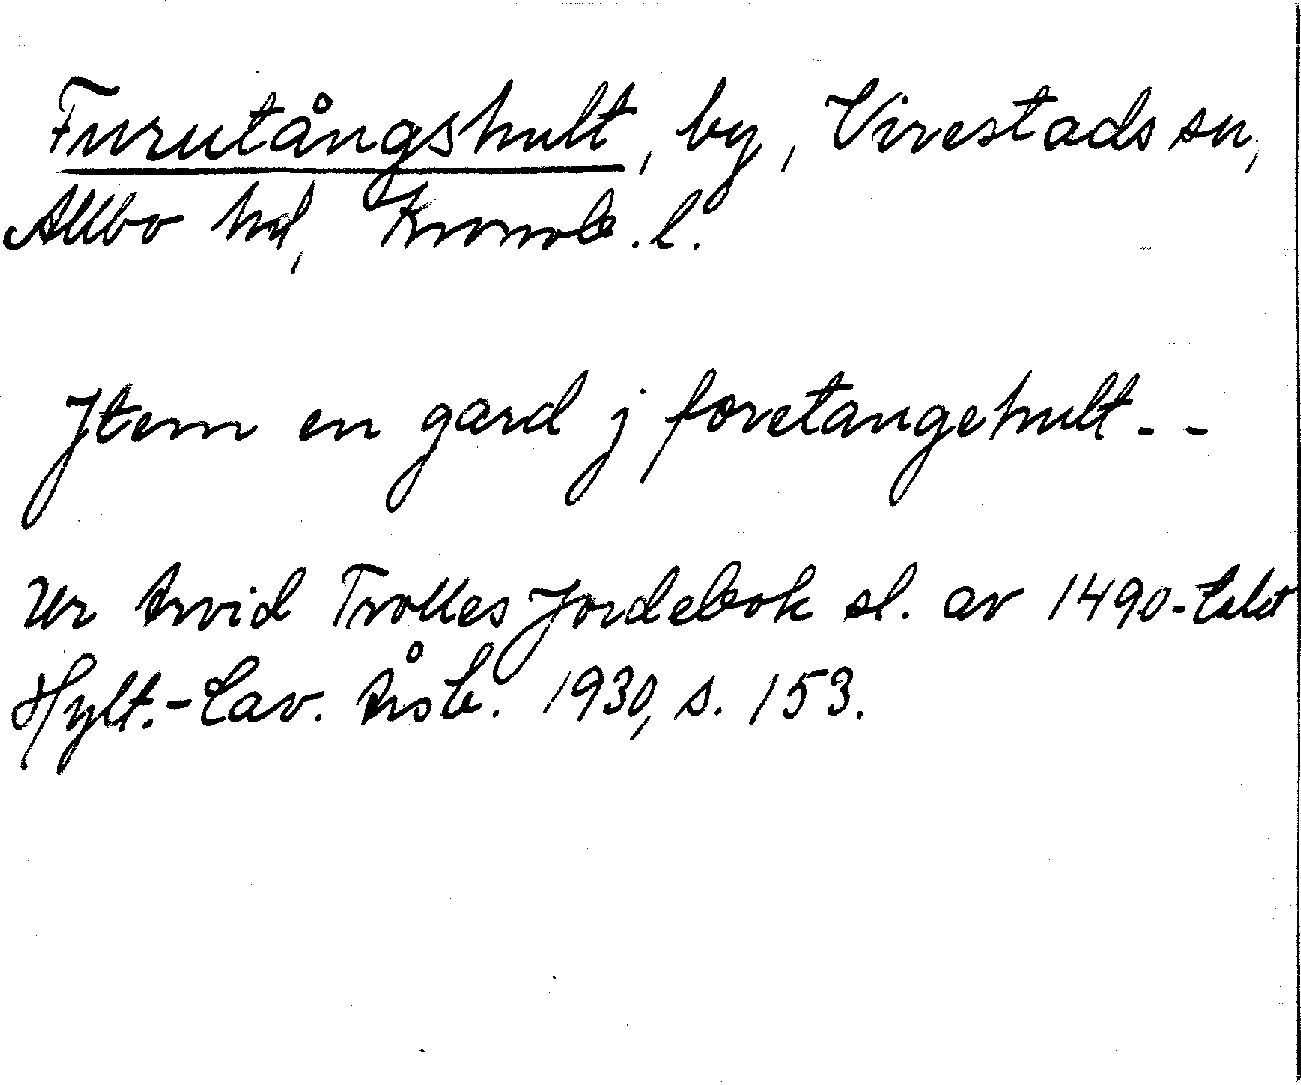 Furutångshult, by, Virestads sn,
Allbo hd, Kronob. l.
Jtem en gard j foretangehult - -
Ur Arvid Trolles Jordebok sl. av 1490-talet
Hylt.-Cav. Årsb. 1930, s. 153.